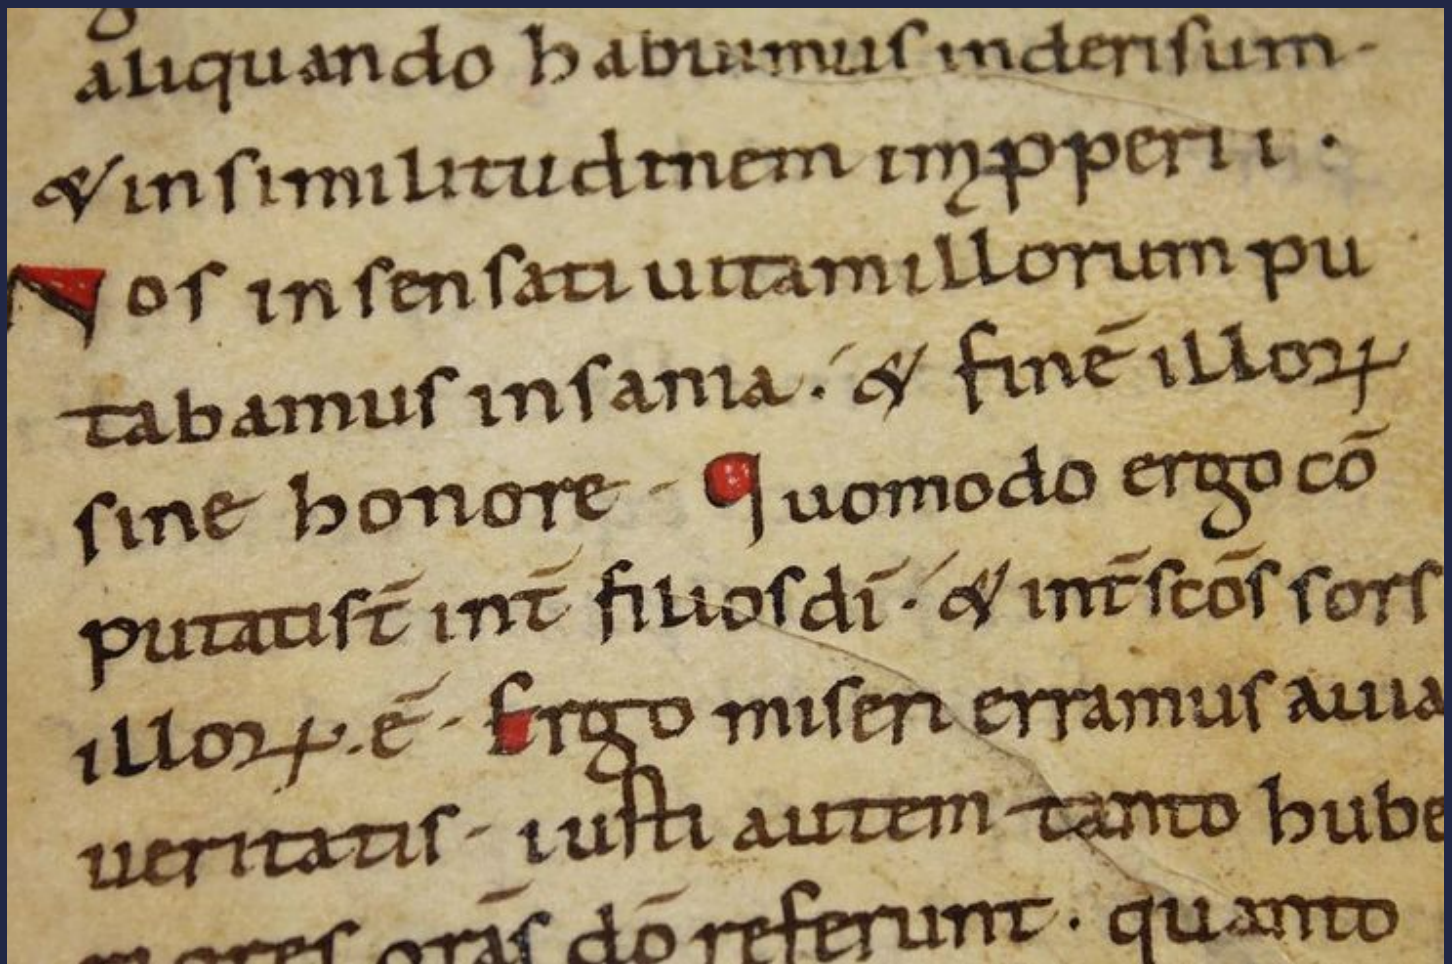 aliquando habuimus inderisum-
& insimilitudinem imꝓperii ·
Nos insensati uitam illorum pu
tabamus insania . & finē illoꝝ
sine honore - Quomodo ergo cō
putatist̄ int̄ filiosdī . & int̄ scōs sors
illoꝝ . ē - Ergo miseri erramus auia
ueritatis - iusti autem tanto hube
mores orās dō referunt . quanto